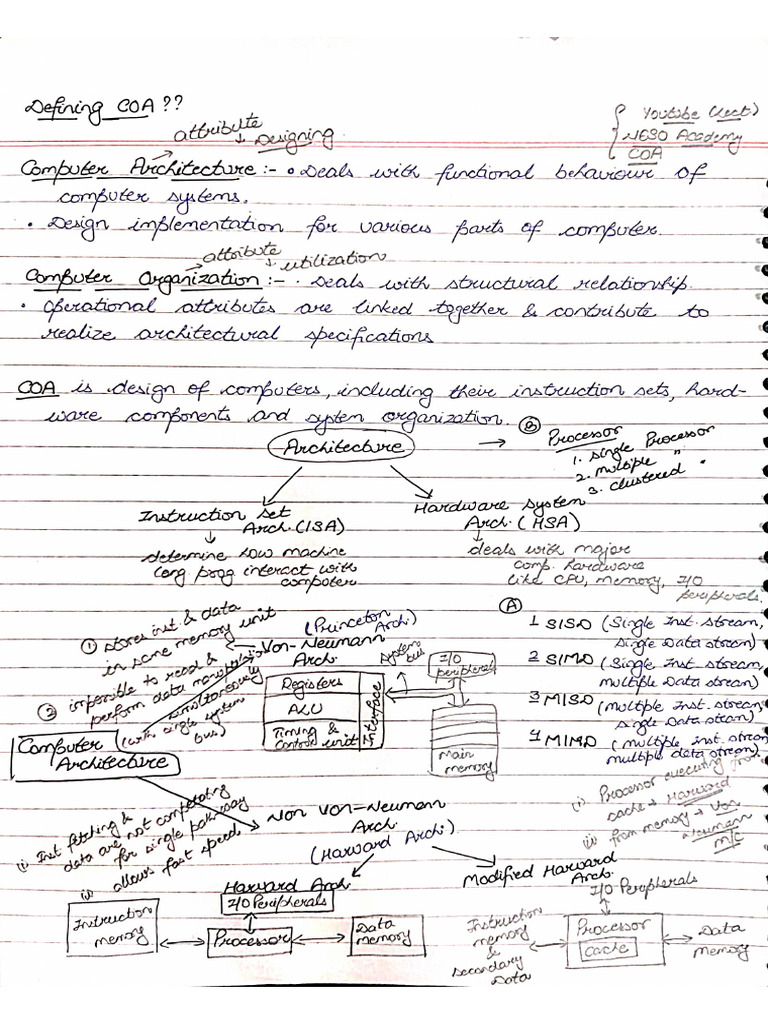 Defining COA ??
{ Youtube (lect)
NESO Academy
COA
attribute
↓ Designing
Computer Architecture :- • Deals with functional behaviour of
computer systems.
• Design implementation for various parts of computer.
attribute
↓ utilization
Computer Organization :- • Deals with structural relationship.
• Operational attributes are linked together & contribute to
realize architectural specifications
COA is design of computers, including their instruction sets, hard-
ware components and system organization.
Architecture
→ (B) Processor
1. Single Processor
2. multiple "
3. clustered "
Instruction set
Arch. (ISA)
↓
determine how machine
lang. prog interact with
computer
Hardware system
Arch. (HSA)
↓
deals with major
comp. hardware
like CPU, memory, I/O
peripherals.
① stores inst. & data
in same memory unit
② impossible to read &
perform data manipulation
simultaneously
(with single system
bus)
(Princeton
Arch)
Von-Neumann
Arch.
Registers
ALU
Timing &
Control unit
Interface
System
bus
I/O
peripheral
main
memory
(A)
1 SISD (Single Inst. stream,
Single Data stream)
2 SIMD (Single Inst. stream,
multiple Data stream)
3 MISD (multiple Inst. stream
single Data stream)
4 MIMD (multiple inst. stream
multiple data stream)
Computer
Architecture
(i) Processor executing from
cache → Harvard
(ii) from memory → Von
Neumann
m/c
(i) Inst fetching &
data are not competating
for single pathway
(ii) allows fast speed
Non Von-Neumann
Arch
(Harward Arch.)
Harvard Arch.
I/O Peripherals
Instruction
memory
Processor
Data
memory
Modified Harward
Arch.
I/O Peripherals
Instruction
memory
&
secondary
Data
Processor
cache
Data
memory